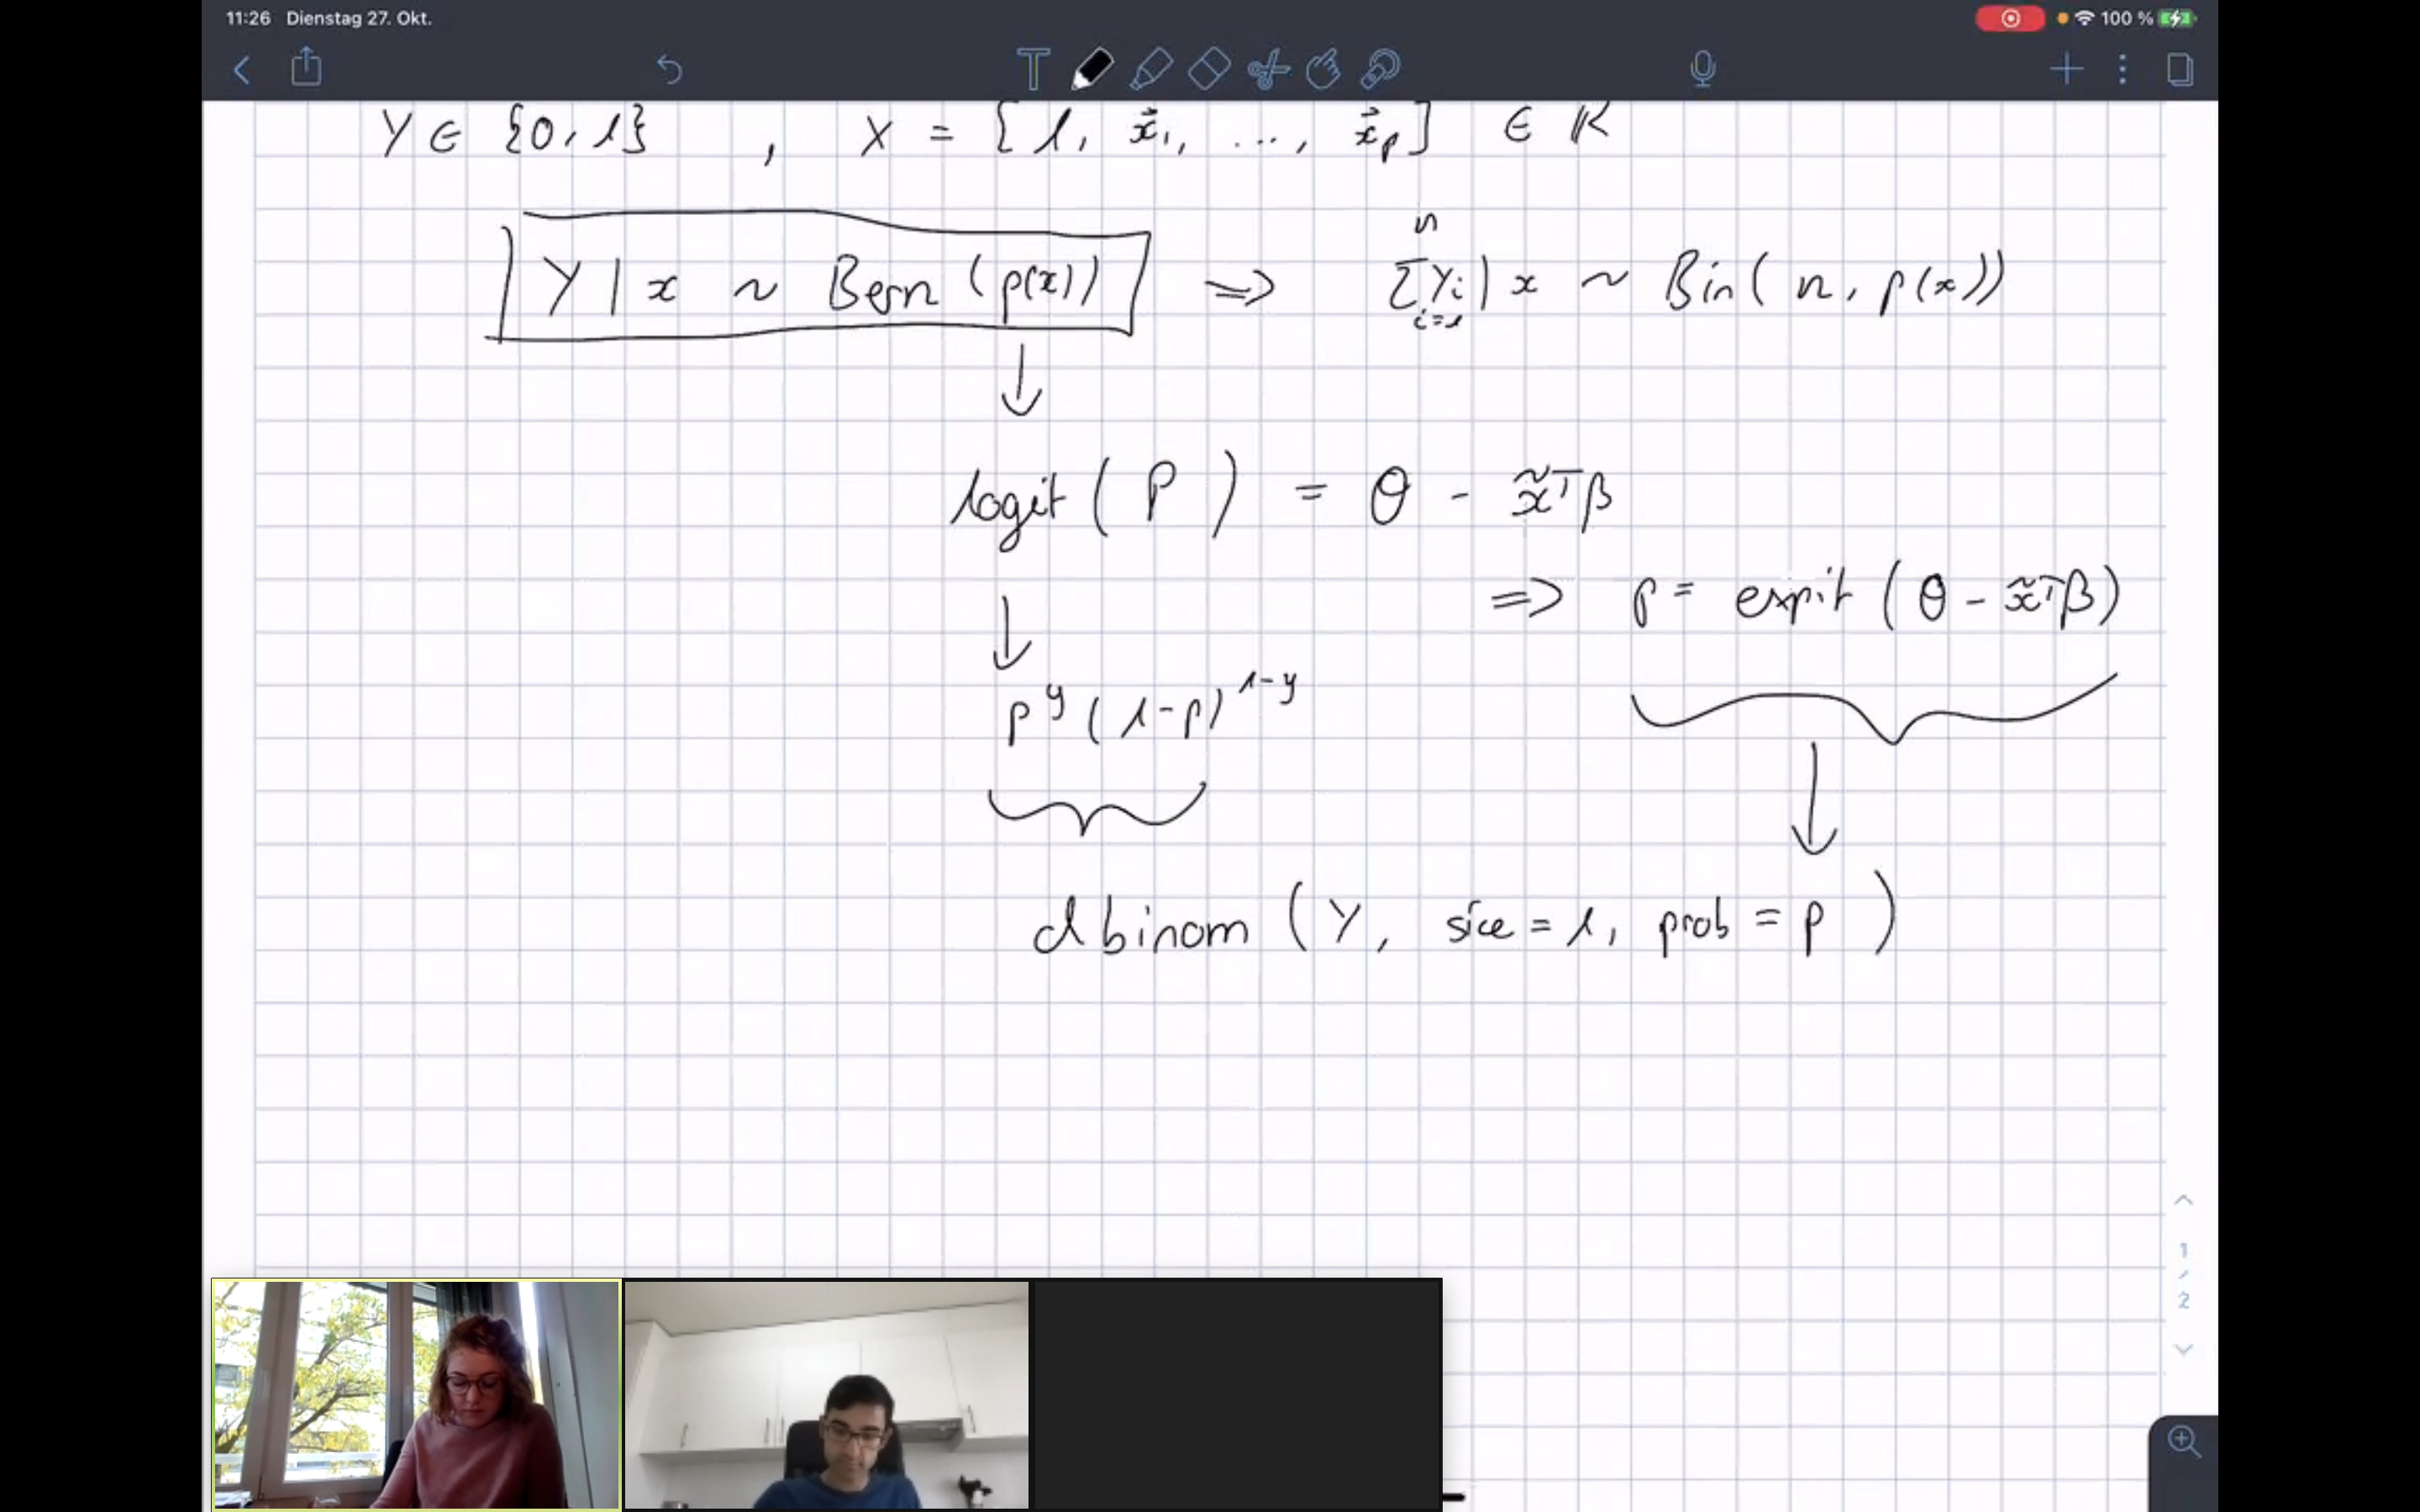 11:26 Dienstag 27. Okt. 100 %
Y ∈ {0, 1} , X = [1, x⃗₁, ..., x⃗ₚ] ∈ ℝ
Y | x ~ Bern (p(x)) => Σᵢ₌₁ⁿ Yᵢ | x ~ Bin( n, p(x))
↓
logit ( P ) = θ - x̃ᵀβ
=> p = expit ( θ - x̃ᵀβ)
↓
p^y (1-p)^(1-y)
↓
dbinom ( Y, size = 1, prob = p )
1 / 2